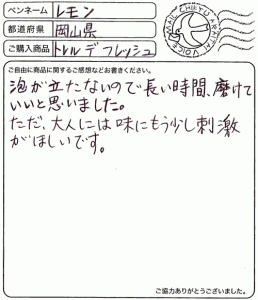 ペンネーム レモン
都道府県 岡山県
ご購入商品 トレルデフレッシュ
ご自由に商品に関するご感想などお書きください。
泡が立たないので長い時間、磨けて
いいと思いました。
ただ、大人には味にもう少し刺激
がほしいです。
ご協力ありがとうございました。